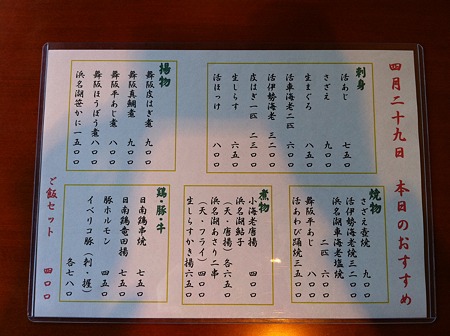 四月二十九日 本日のおすすめ
刺身
活あじ 七五〇
さざえ 九〇〇
生まぐろ 八五〇
活車海老二匹 六〇〇
活伊勢海老 三二〇〇
皮はぎ一匹 二三〇〇
生しらす 六五〇
活ほっけ 八〇〇
揚物
舞阪皮はぎ煮 九〇〇
舞阪真鯛煮 九〇〇
舞阪平あじ煮 八〇〇
舞阪ほうぼう煮 八〇〇
浜名湖笹かに 一五〇〇
焼物
さざえ壺焼 九〇〇
活伊勢海老焼 三二〇〇
浜名湖車海老塩焼
二匹 六〇〇
舞阪平あじ 八〇〇
活あわび踊焼 三五〇〇
煮物
小海老唐揚 四〇〇
浜名湖鮎子
(天・唐揚) 各六五〇
浜名湖あさり二串
(天・フライ) 四〇〇
生しらすかき揚 六五〇
鶏・豚・牛
日南鶏串焼 七五〇
日南鶏竜田揚 七五〇
豚ホルモン 四五〇
イベリコ豚(刺・握)
各七八〇
ご飯セット 四〇〇